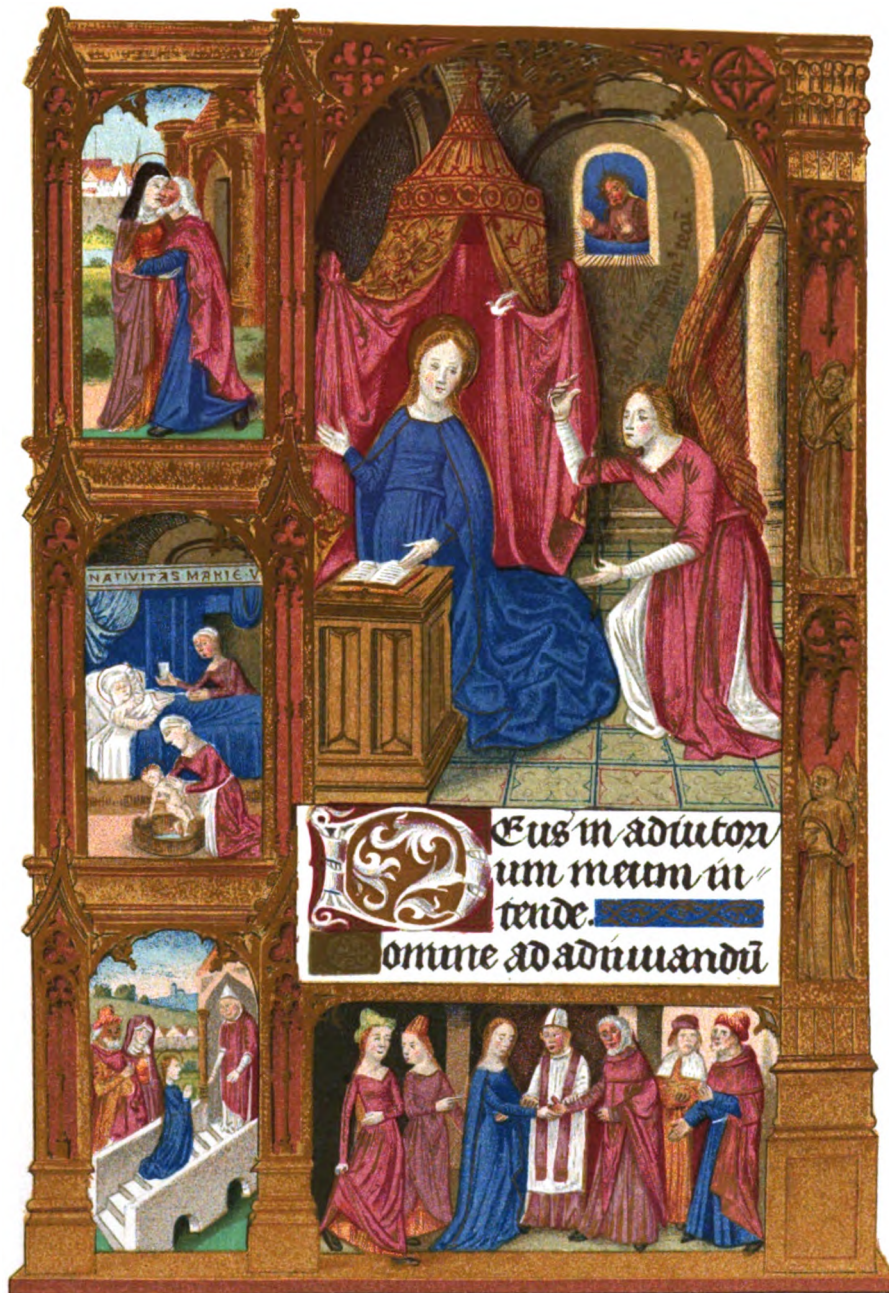 NATIVITAS MARIE V
Deus in adiutori
um meum in〃
tende.
Domine ad adiuuandū